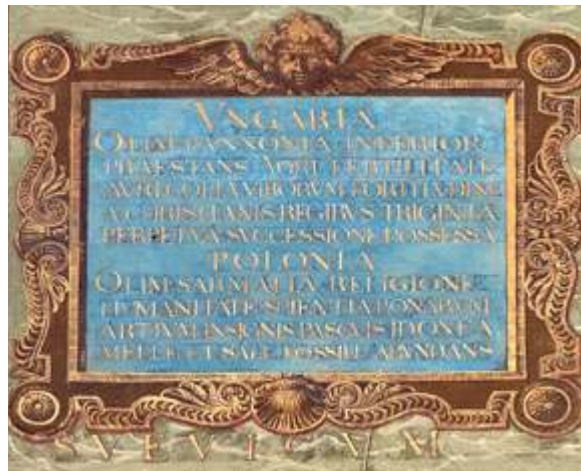 VNGARIA
OLIM PANNONIA INFERIOR
PRAESTANS AGRI FERTILITATE
AVRI COPIA VIRORVM FORTITVDINE
A CHRISTIANIS REGIBVS TRIGINTA
PERPETVA SVCCESSIONE POSSESSA
POLONIA
OLIM SARMATIA RELIGIONE
HVMANITATE SCIENTIA BONARVM
ARTIVM INSIGNIS PASCVIS IDONEA
MELLE ET SALE FOSSILI ABVNDANS
SVEVICVM